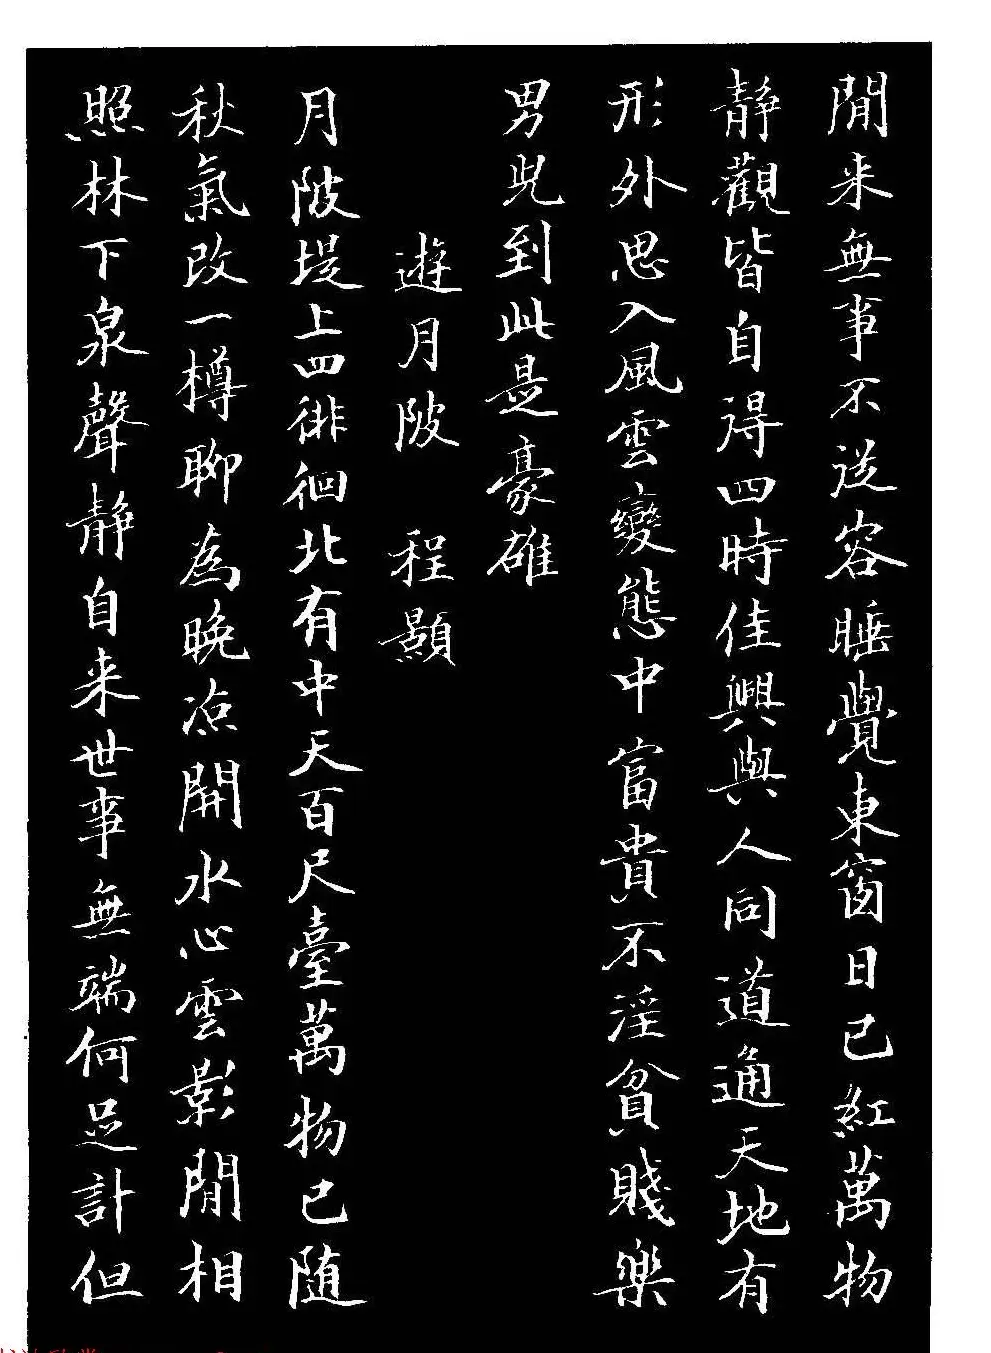 閒来無事不送容睡覺東窗日已紅萬物
靜觀皆自得四時佳興與人同道通天地有
形外思入風雲變態中富貴不淫貧賤樂
男兒到此是豪雄
遊月陂 程顥
月陂堤上四徘徊北有中天百尺臺萬物已随
秋氣改一樽聊為晚凉開水心雲影閒相
照林下泉聲靜自来世事無端何足計但